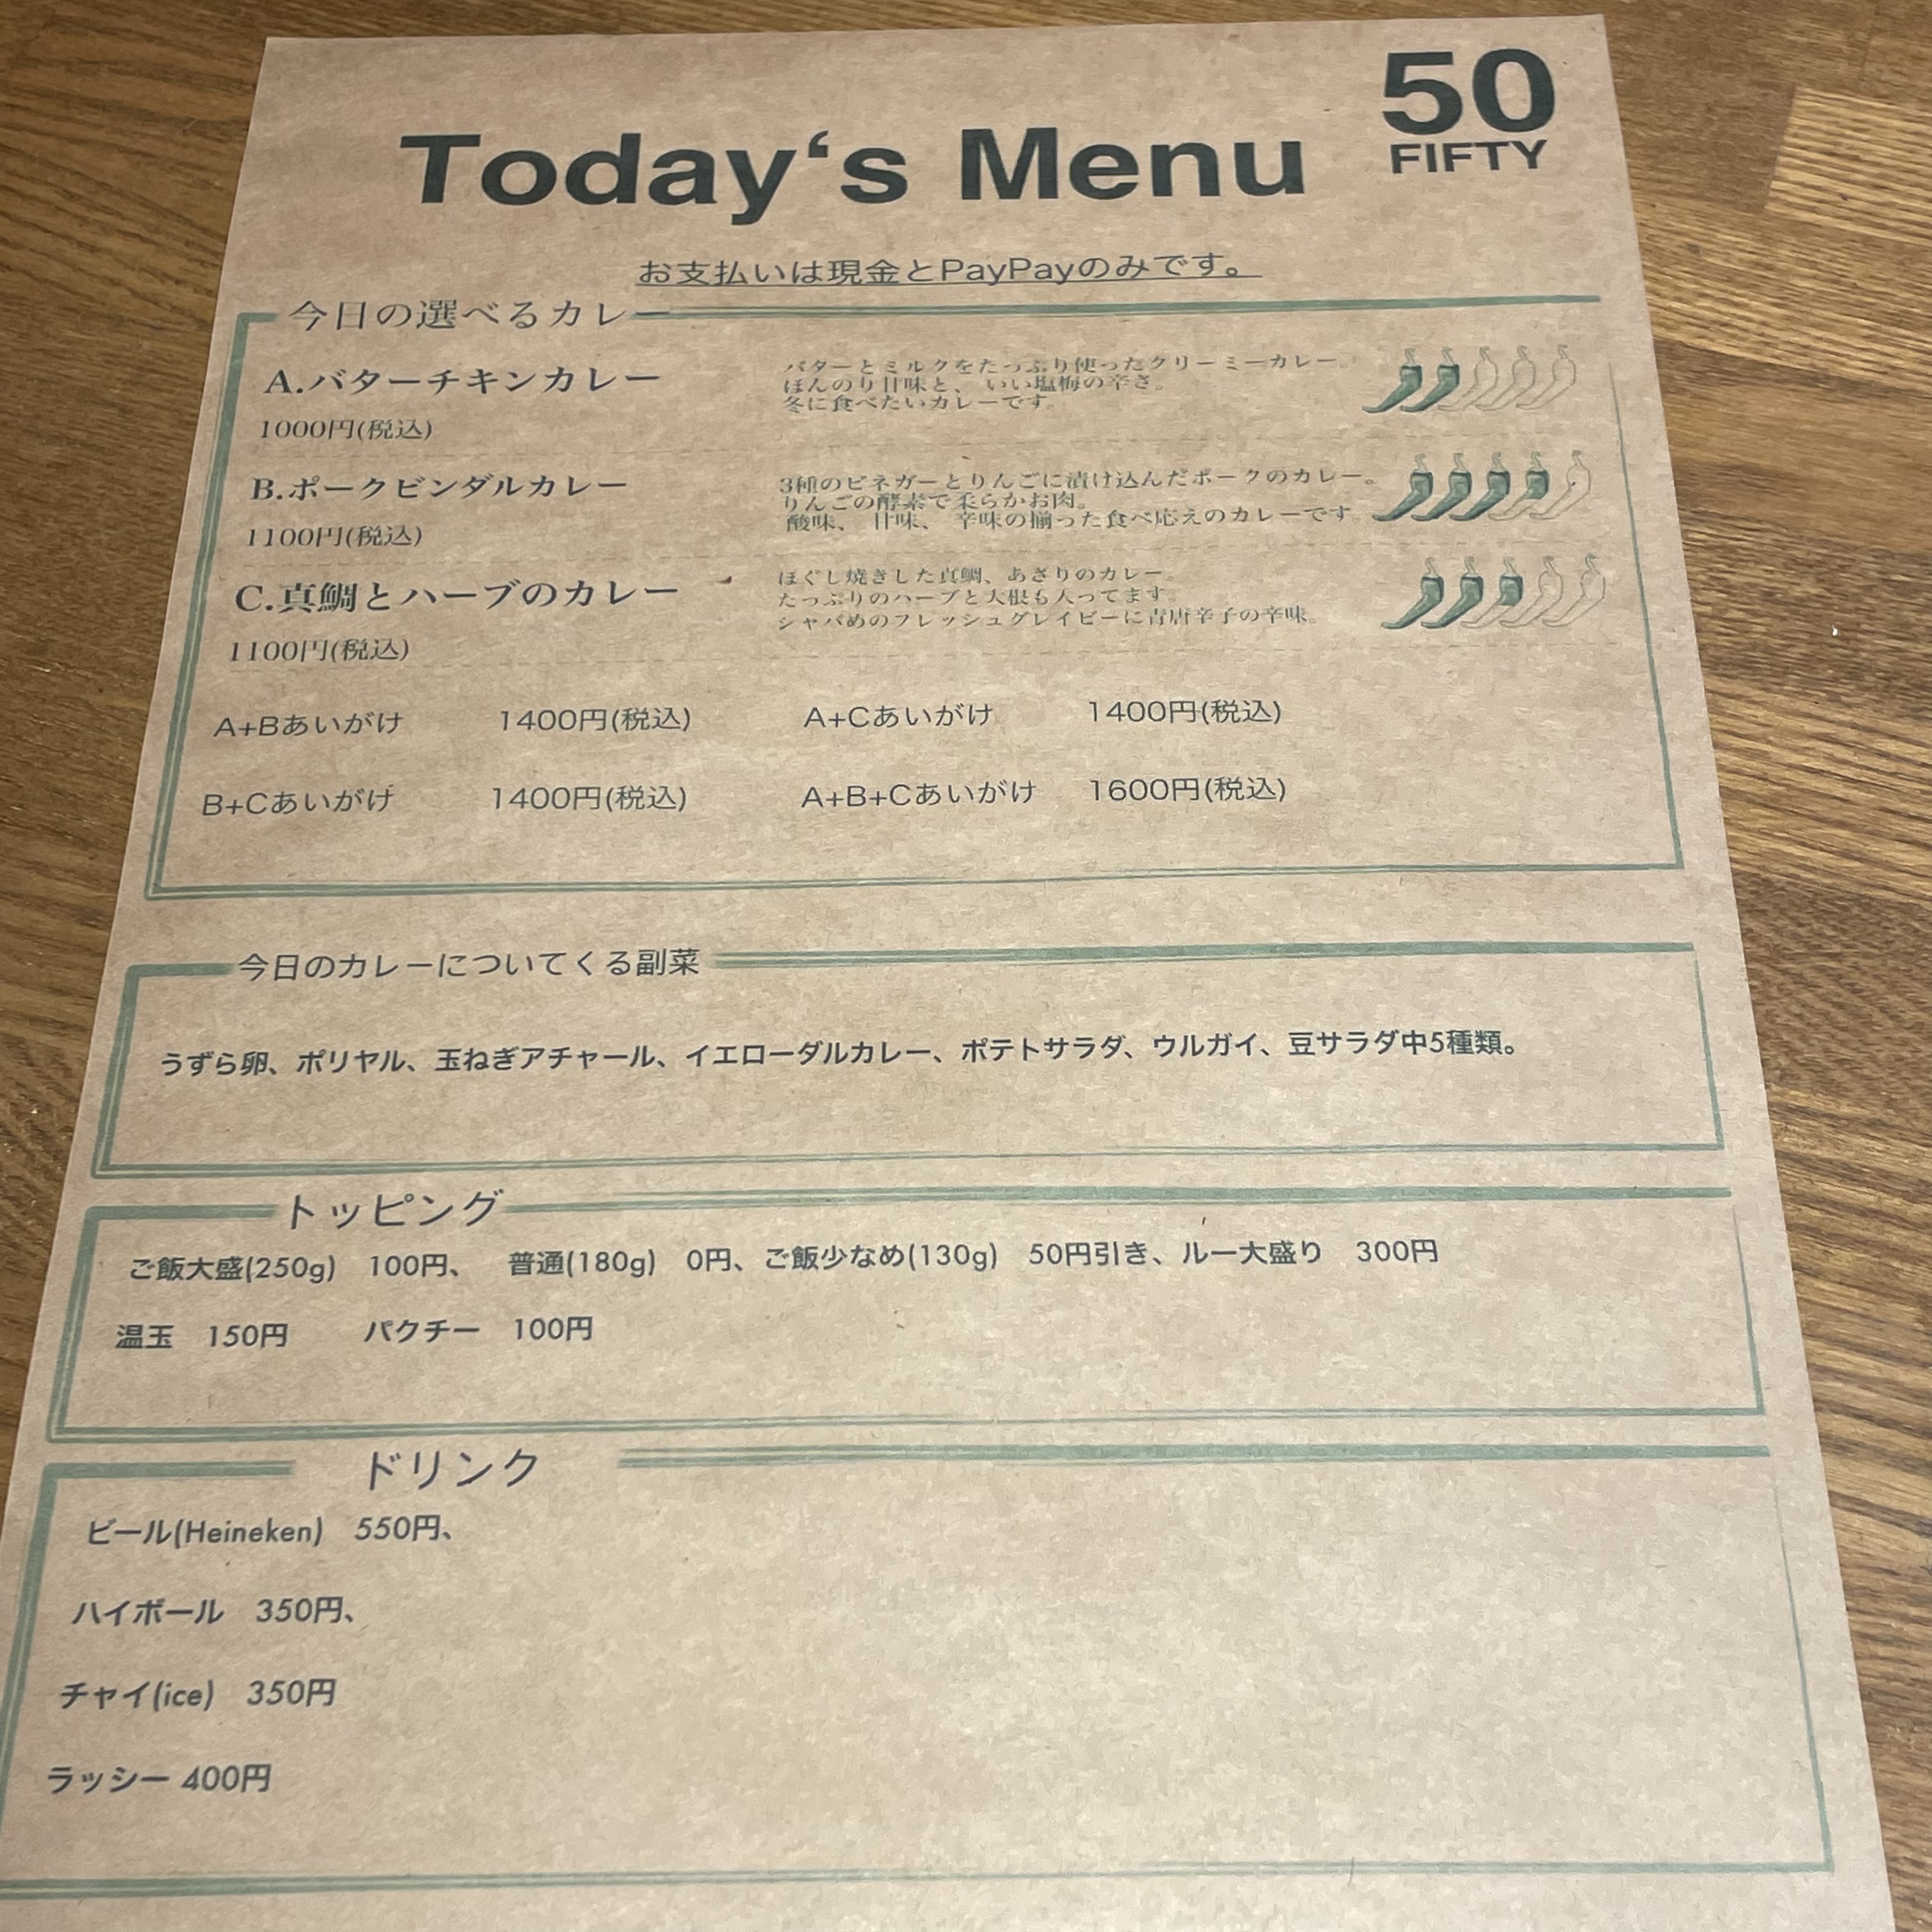 50
FIFTY
Today‘s Menu
お支払いは現金とPayPayのみです。
今日の選べるカレー
A.バターチキンカレー
1000円(税込)
バターとミルクをたっぷり使ったクリーミーカレー。
ほんのり甘味と、いい塩梅の辛さ。
冬に食べたいカレーです。
B.ポークビンダルカレー
1100円(税込)
3種のビネガーとりんごに漬け込んだポークのカレー。
りんごの酵素で柔らかお肉。
酸味、甘味、辛味の揃った食べ応えのカレーです。
C.真鯛とハーブのカレー
1100円(税込)
ほぐし焼きした真鯛、あさりのカレー。
たっぷりのハーブと大根も入ってます。
シャバめのフレッシュグレイビーに青唐辛子の辛味。
A+Bあいがけ 1400円(税込) A+Cあいがけ 1400円(税込)
B+Cあいがけ 1400円(税込) A+B+Cあいがけ 1600円(税込)
今日のカレーについてくる副菜
うずら卵、ポリヤル、玉ねぎアチャール、イエローダルカレー、ポテトサラダ、ウルガイ、豆サラダ中5種類。
トッピング
ご飯大盛(250g) 100円、 普通(180g) 0円、ご飯少なめ(130g) 50円引き、ルー大盛り 300円
温玉 150円 パクチー 100円
ドリンク
ビール(Heineken) 550円、
ハイボール 350円、
チャイ(ice) 350円
ラッシー 400円